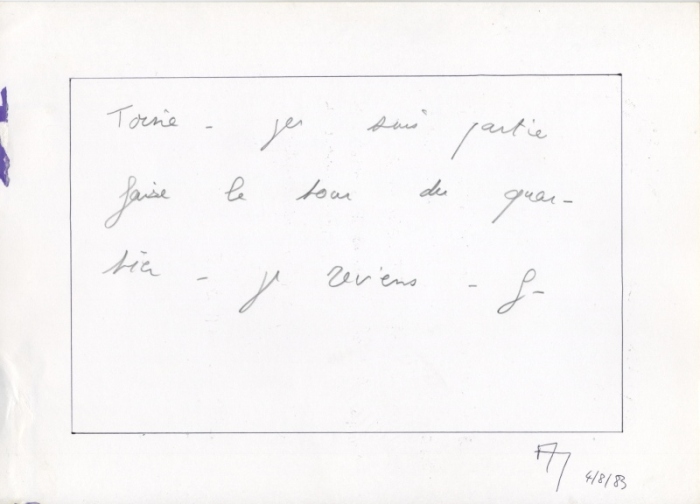 Toinie - je suis partie
faire le tour du quar-
tier - je reviens - G-
4/8/83